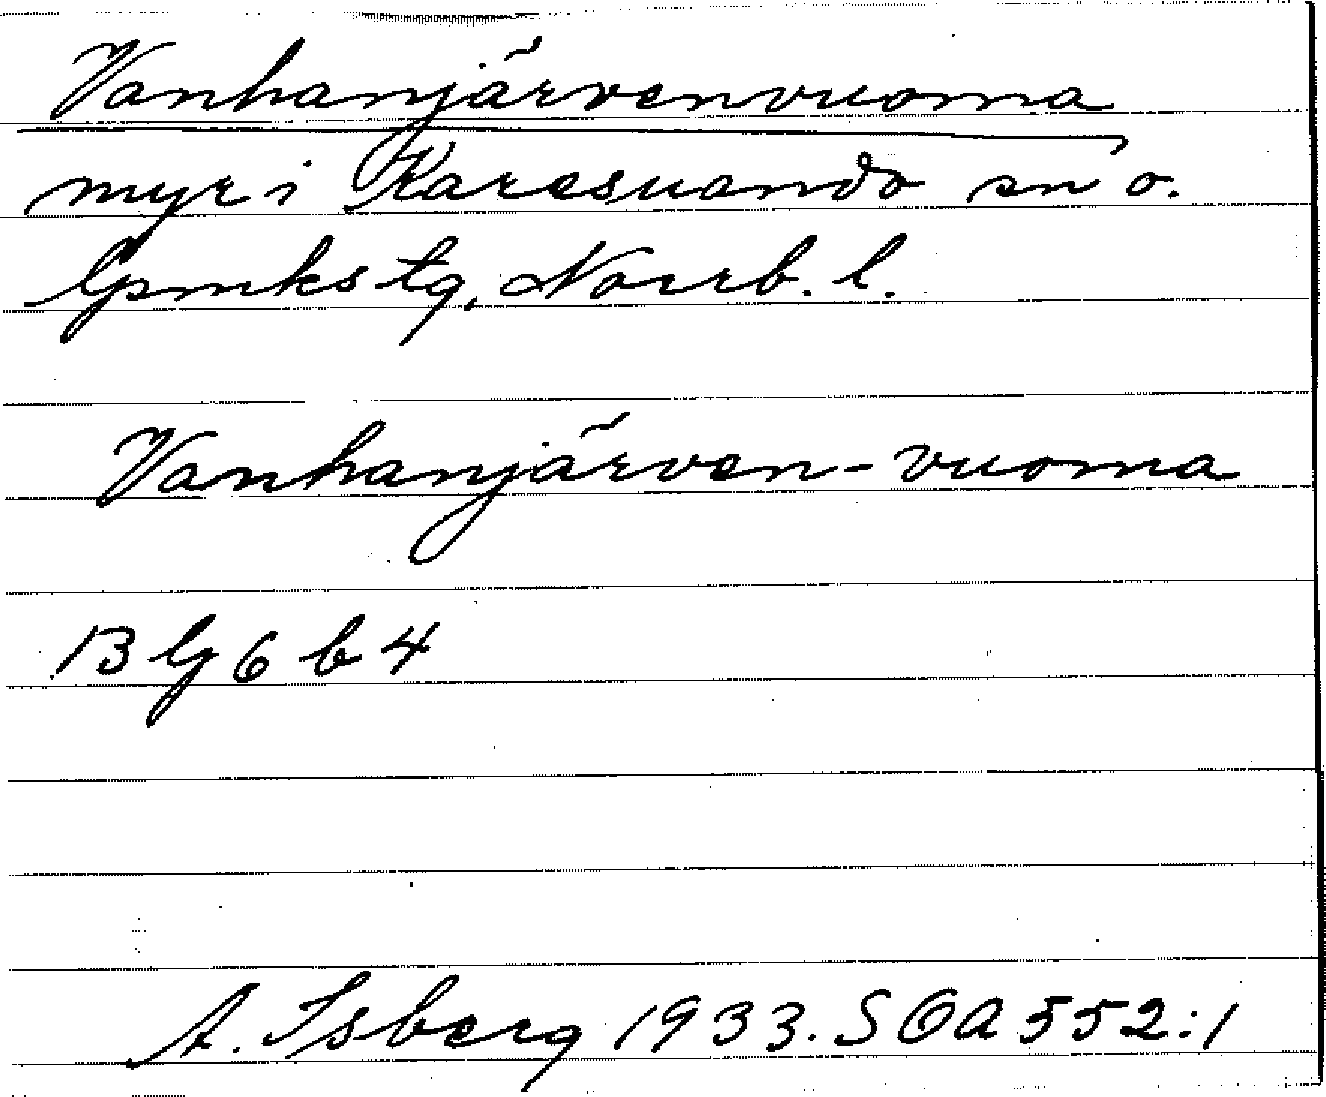 Vanhanjärvenvuoma
myr i Karesuando sn o.
lpmks tg, Norrb. l.
Vanhanjärven-vuoma
B G 6 b 4
A. Isberg 1933. SOA 552:1